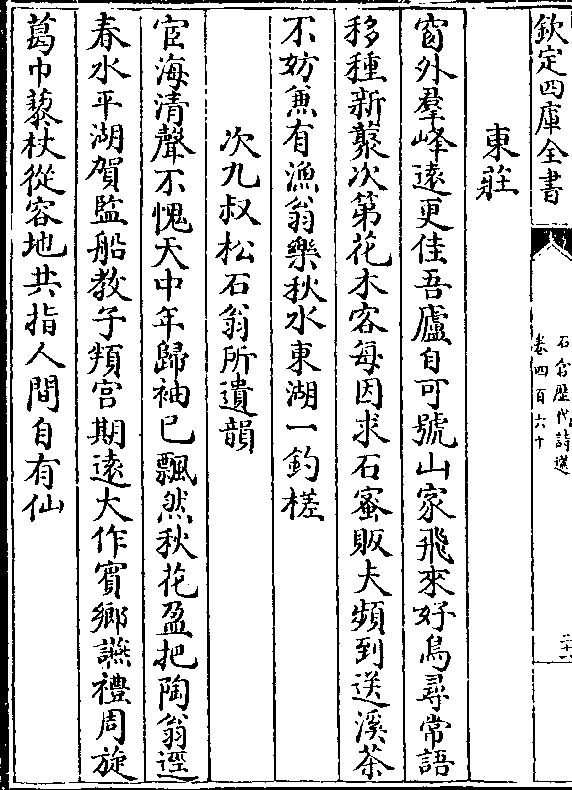 欽定四庫全書
石倉歷代詩選
卷四百六十
東莊
窗外羣峰遠更佳吾廬自可號山家飛來好鳥尋常語
移種新蘂次第花木客每因求石蜜販夫頻到送溪茶
不妨兼有漁翁樂秋水東湖一釣槎
次九叔松石翁所遺韻
宦海清聲不愧天中年歸袖已飄然秋花盈把陶翁逕
春水平湖賀監船教子頖宮期遠大作賓鄉讌禮周旋
葛巾藜杖從容地共指人間自有仙